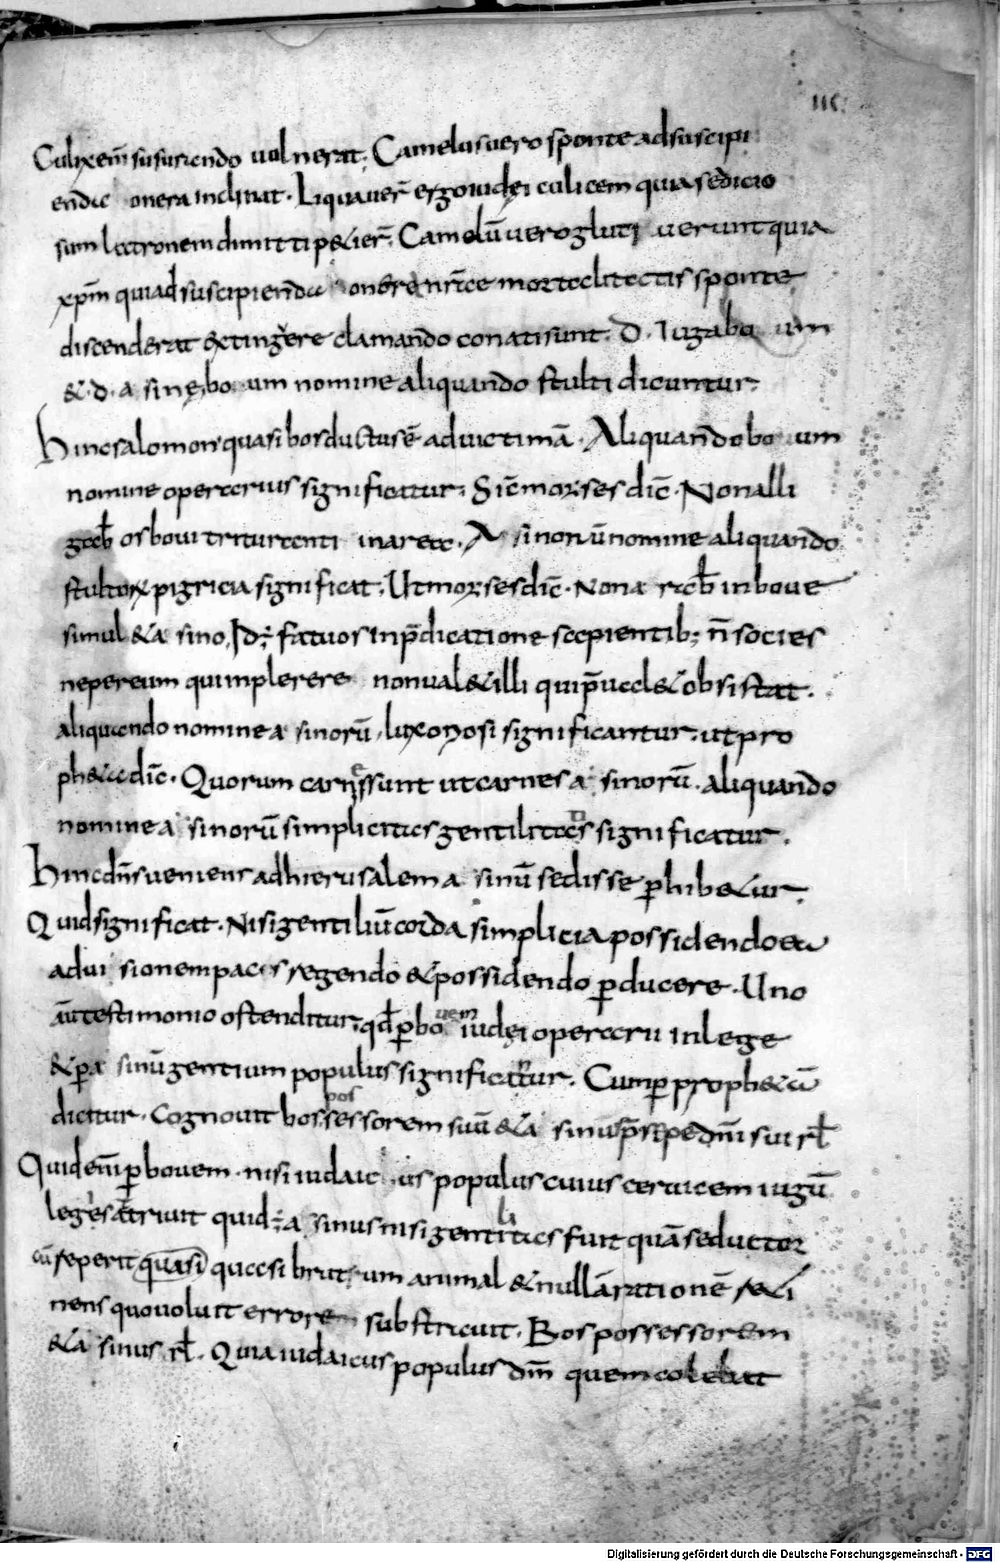 115.
Culix em̄ susurrando vulnerat. Camelus vero sponte ad suscipi
enda onera inclinat. Liquaver̄ ergo iudęi culicem quia sedicio
sum latronem dimitti petier̄. Camelū vero glutierunt quia
xpm̄ qui ad suscipienda onera nr̄ae mortalitatis sponte
discenderat extingere clamando conati sunt. D. Iuga boum
& d. asinę, boum nomine aliquando stulti dicuntur.
Hinc salomon quasi bos ductus ē ad victimā. Aliquando boum
nomine operarius significatur. Sic moyses dic̄. Non alli
gab̄ os bovi trituranti in area. Asinorū nomine aliquando
stultorꝝ pigricia significat. Ut moyses dic̄. Non arab̄ in bove
simul & asino. Id; fatuos in p̄dicatione sapientib; n̄ socies
ne per eum qui implere re non val& illi qui p̄val& obsistat.
aliquando nomine asinorū, luxoriosi significantur. ut pro
ph&a dic̄. Quorum carnes sunt ut carnes asinorū. aliquando
nomine asinorū simplicitas gentilitatis significatur.
Hinc dn̄s veniens ad hierusalem asinū sedisse ꝑhib&ur.
Quid significat. Nisi gentiliū corda simplicia possidendo ea
ad visionem pacis regendo & possidendo ꝑducere. Uno
aūt testimonio ostenditur. qd̄ ꝑ bovem iudęi operarii in lege
& ꝑ asinū gentium populus significatur. Cum ꝑ proph&ā
dicitur. Cognovit bos possessorem suū & asinus p̄sepe dn̄i sui rł
Quid em̄ ꝑ bovem. nisi iudaicus populus cuius cervicem iugū
legis atrivit quid; asinus nisi gentilitas fuit quā seductor
cū reperit quasi quasi brutum animal & nullā rationē reti
nens quo voluit errore substravit. Bos possessorem
& asinus rł. Quia iudaicus populus dm̄ quem colebat
Digitalisierung gefördert durch die Deutsche Forschungsgemeinschaft - DFG